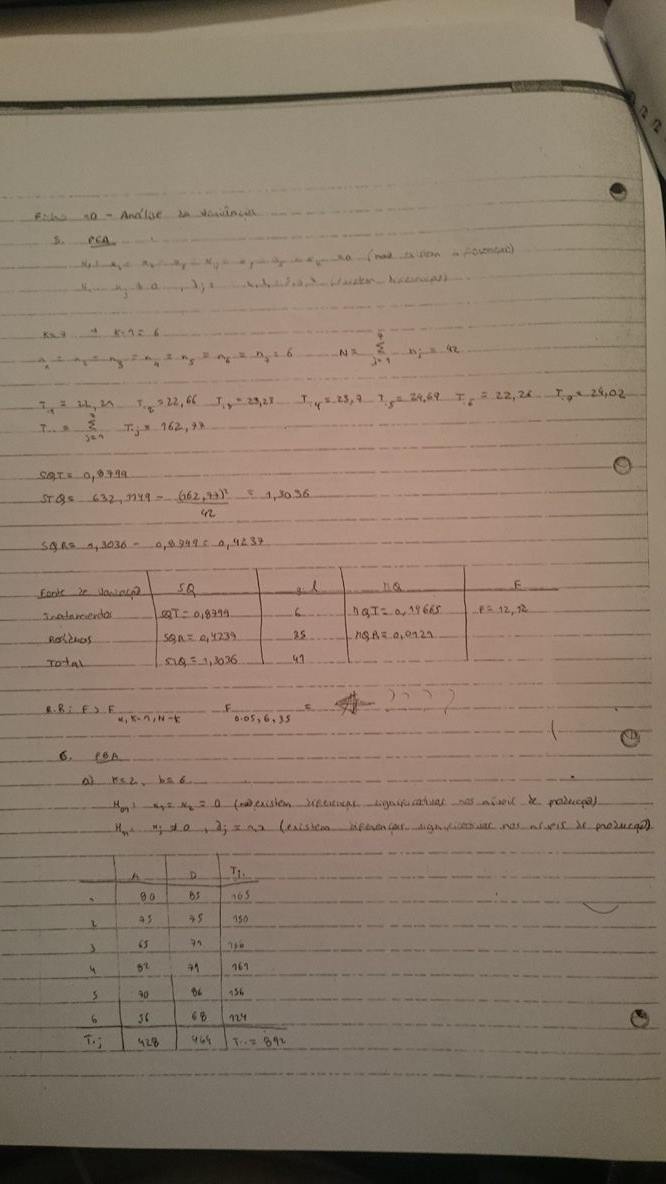 Ficha 10 - Análise da variância
5. PCA
K=7 → K-1=6
n1 = n2 = n3 = n4 = n5 = n6 = n7 = 6 N= Σ j=1 7 nj = 42
T.1 = 22,21 T.2 = 22,66 T.3 = 23,23 T.4 = 23,7 T.5 = 24,69 T.6 = 22,26 T.7 = 24,02
T.. = Σ j=1 7 T.j = 162,77
SQT = 0,8799
STQ = 632,1149 - (162,77)² / 42 = 1,3036
SQR = 1,3036 - 0,8799 = 0,4237
Fonte de variação SQ g.l MQ F
Tratamentos SQT = 0,8799 6 MQT = 0,14665 F = 12,12
Resíduos SQR = 0,4237 35 MQR = 0,0121
Total STQ = 1,3036 41
R.R: F > F α, K-1, N-K F 0.05, 6, 35 = ????
6. PBA
a) K=2, b=6
H01: α1 = α2 = 0 (não existem diferenças significativas nos níveis de produção)
H11: αj ≠ 0, ∃j = 1,2 (existem diferenças significativas nos níveis de produção)
A D Ti.
1 80 85 165
2 75 75 150
3 65 71 136
4 82 79 161
5 70 86 156
6 56 68 124
T.j 428 464 T.. = 892